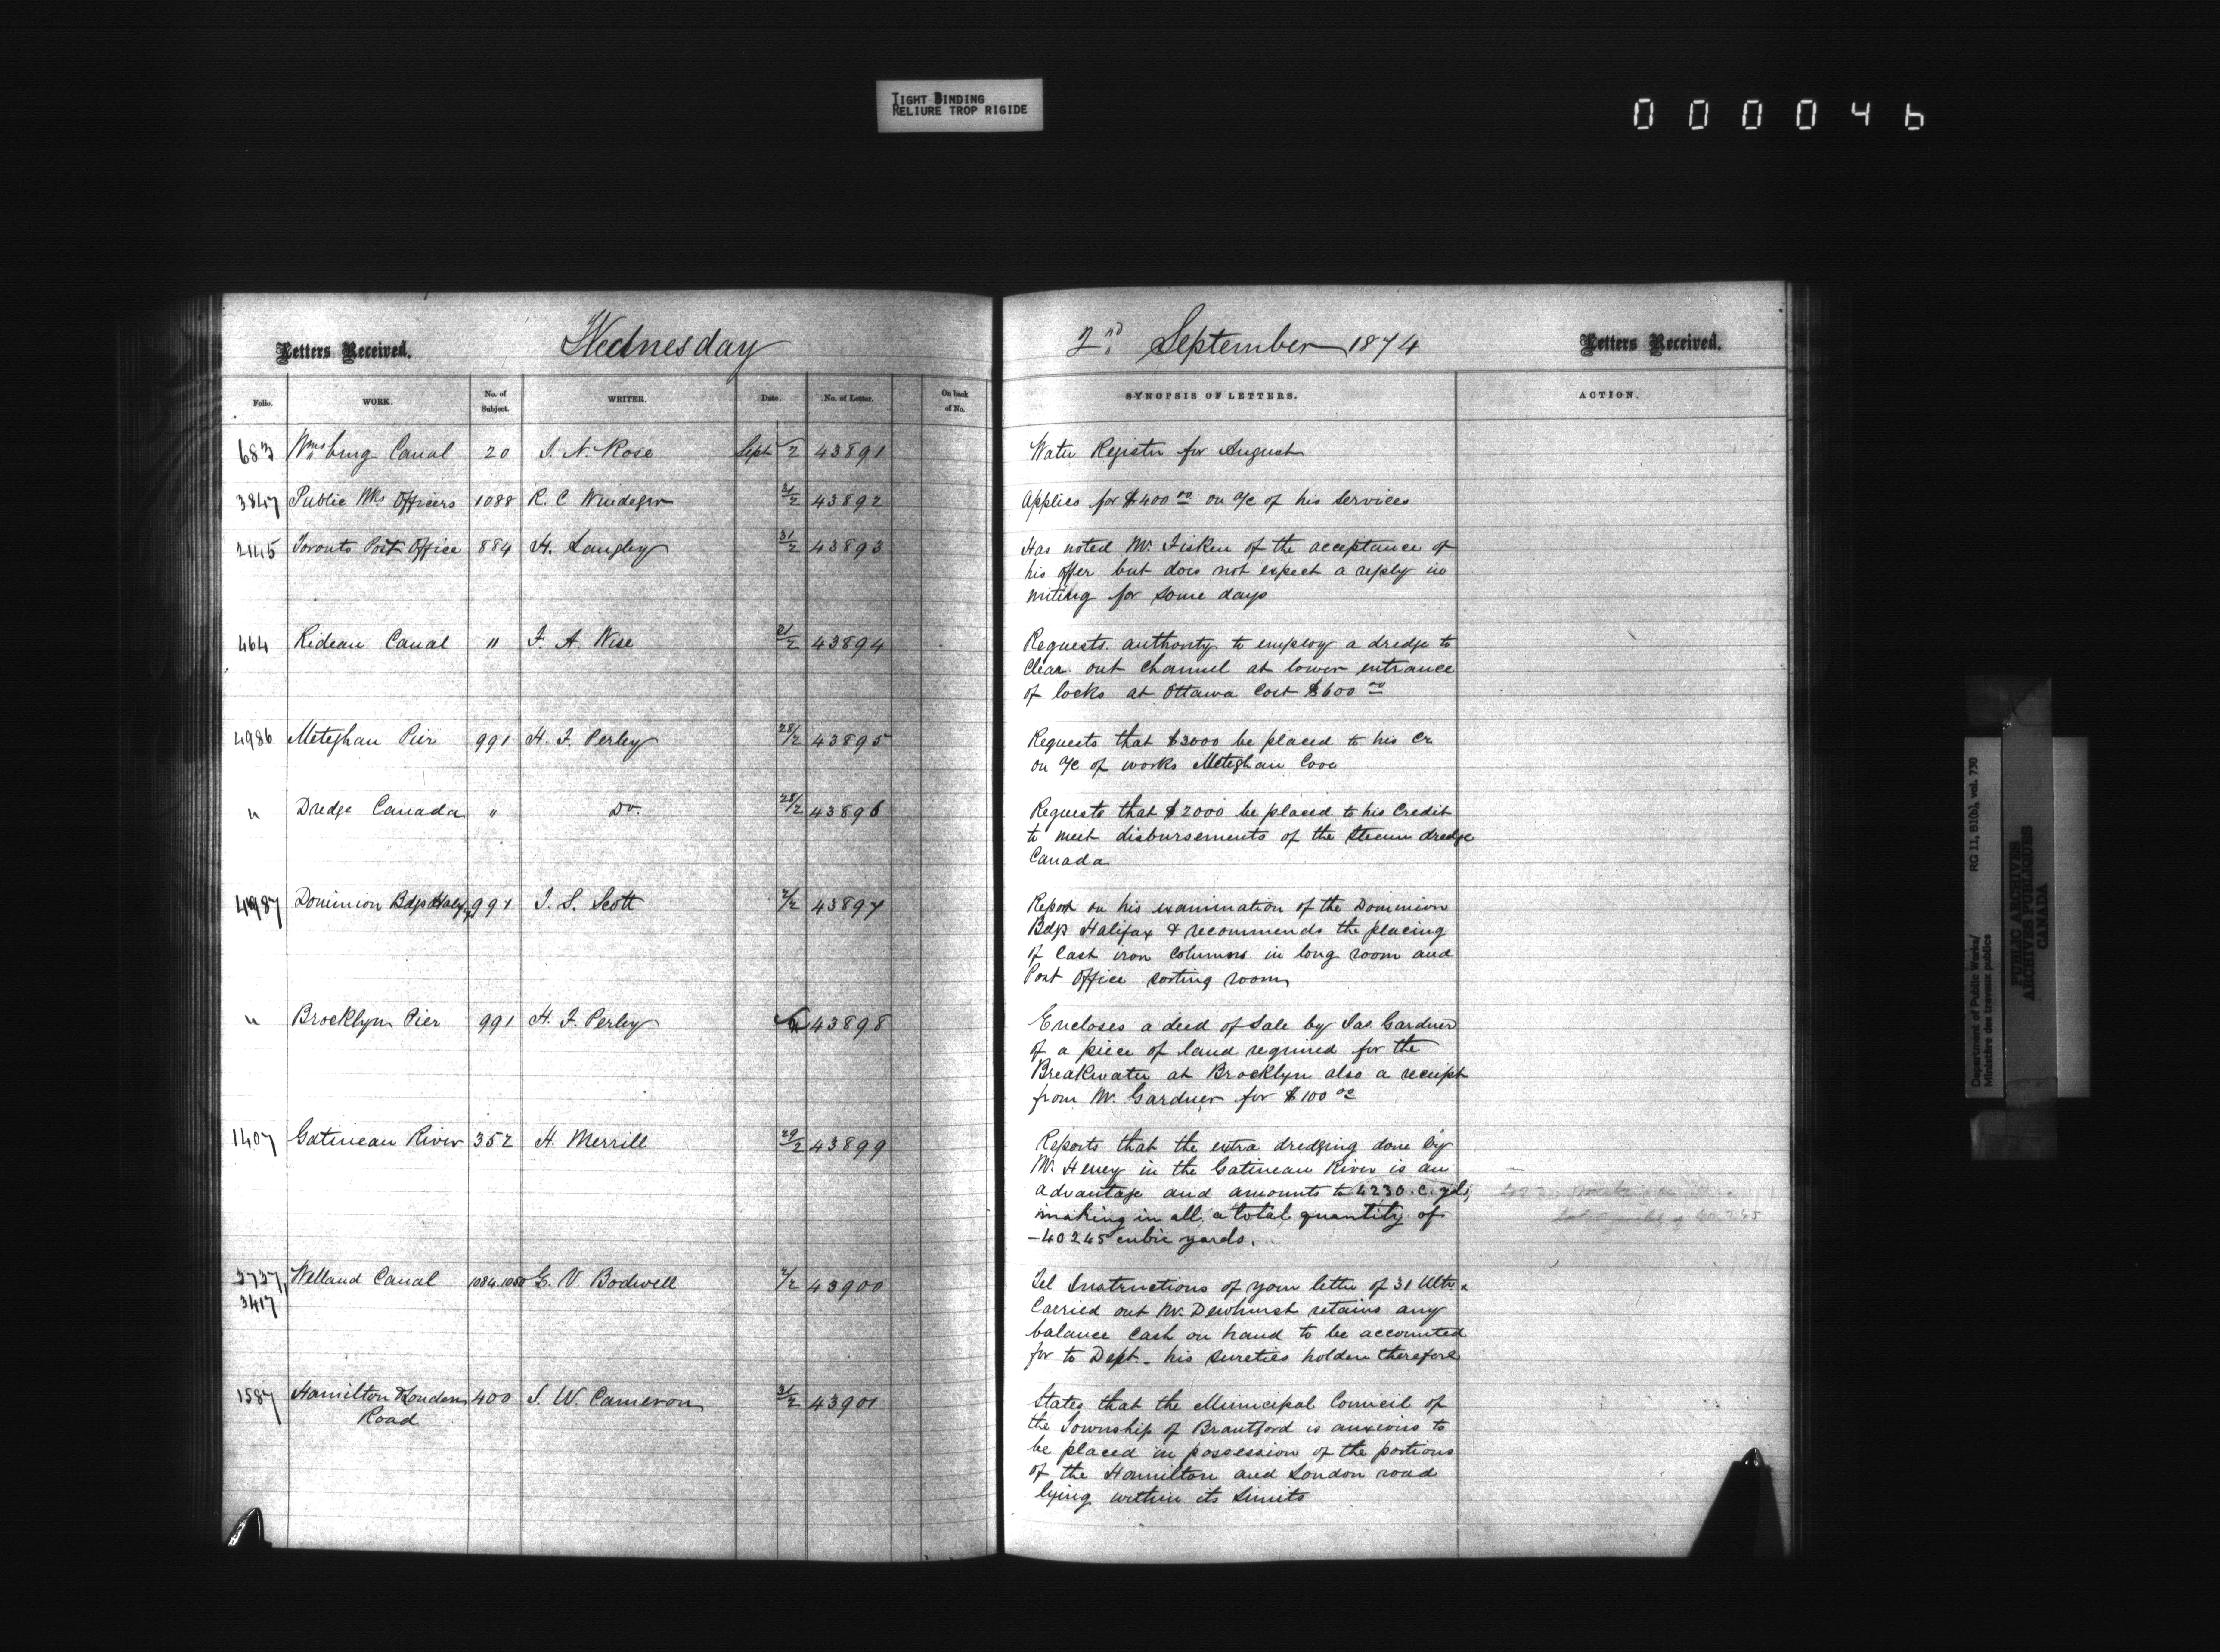 TIGHT BINDING
RELIURE TROP RIGIDE
000046
Letters Received. Wednesday 2nd September 1874 Letters Received.
Folio. WORK. No. of Subject. WRITER. Date. No. of Letter. On back of No. SYNOPSIS OF LETTERS. ACTION.
683 Wmsburg Canal 20 J. N. Rose Sept 2 43891 Water Register for August
3847 Public Wks Officers 1088 R. C. 31/2 43892 Applies for $400 00 on a/c of his services
2445 Toronto Post Office 884 H. Langley 31/2 43893 Has noted Mr. Fisken of the acceptance of
his offer but does not expect a reply in
writing for some days
464 Rideau Canal " F. A. Wise 31/2 43894 Requests authority to employ a dredge to
Clear out channel at lower entrance
of locks at Ottawa Cost $600 00
4986 Meteghan Pier 991 H. F. Perley 28/2 43895 Requests that $3000 be placed to his Cr
on a/c of works Meteghan Cove
" Dredge Canada " Do. 28/2 43896 Requests that $2000 be placed to his Credit
to meet disbursements of the Steam dredge
Canada
4987 Dominion Bdgs Halifax 991 T. S. Scott 2/2 43897 Report on his examination of the Dominion
Bdgs Halifax & recommends the placing
of Cast iron Columns in long room and
Post Office sorting room
" Brooklyn Pier 991 H. F. Perley 43898 Encloses a deed of Sale by Jas. Gardner
of a piece of land required for the
Breakwater at Brooklyn also a receipt
from Mr. Gardner for $100 00
1407 Gatineau River 352 H. Merrill 29/2 43899 Reports that the extra dredging done by
Mr. Heney in the Gatineau River is an
advantage and amounts to 4230 c. yds,
making in all, a total quantity of
40245 cubic yards.
3737, Welland Canal 1084.1050 G. V. Bodwell 2/2 43900 Tel Instructions of your letter of 31 Ulto
3417 Carried out Mr. Dewhurst retains any
balance Cash on hand to be accounted
for to Dept. his sureties holden therefore
1587 Hamilton & London 400 J. W. Cameron 31/2 43901 States that the Municipal Council of
Road the Township of Brantford is anxious to
be placed in possession of the portions
of the Hamilton and London road
lying within its limits
Department of Public Works/ RG 11, B1(b), vol. 730
Ministère des travaux publics
PUBLIC ARCHIVES
ARCHIVES PUBLIQUES
CANADA